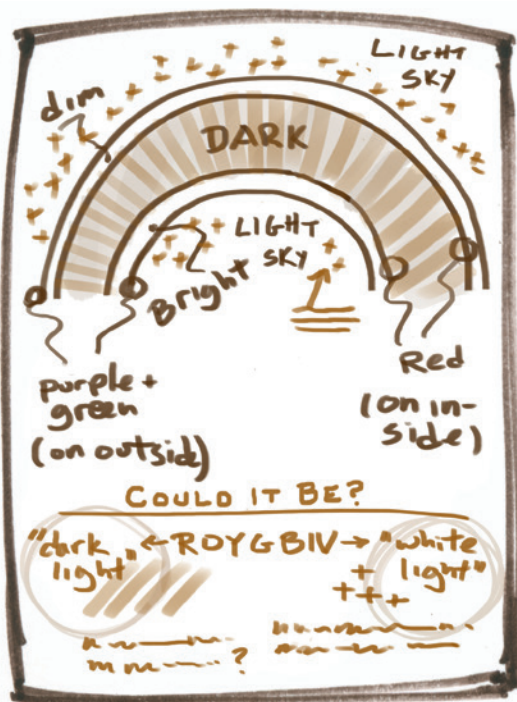 LIGHT
SKY
dim
DARK
LIGHT
SKY
Bright
purple +
green
(on outside)
Red
(on in-
side)
COULD IT BE?
"dark ← ROYGBIV → "white
light" light"
?